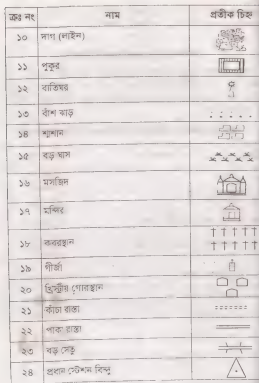 ক্রঃ নং নাম প্রতীক চিহ্ন
১০ দাগ (লাইন)
১১ পুকুর
১২ বাতিঘর
১৩ বাঁশ ঝাড়
১৪ শ্মশান
১৫ বড় ঘাস
১৬ মসজিদ
১৭ মন্দির
১৮ কবরস্থান
১৯ গীর্জা
২০ খ্রিস্টীয় গোরস্থান
২১ কাঁচা রাস্তা
২২ পাকা রাস্তা
২৩ বড় সেতু
২৪ প্রধান স্টেশন বিন্দু